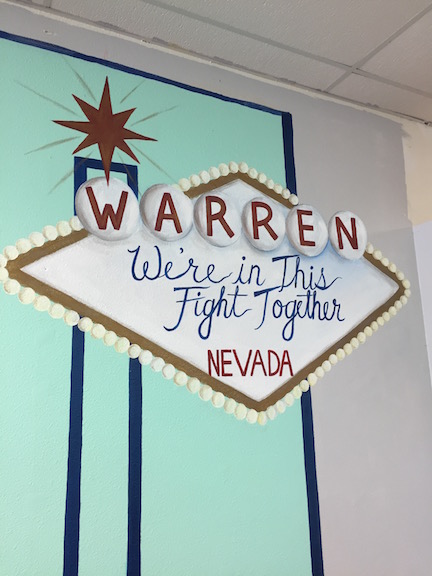 WARREN
We're in This
Fight Together
NEVADA